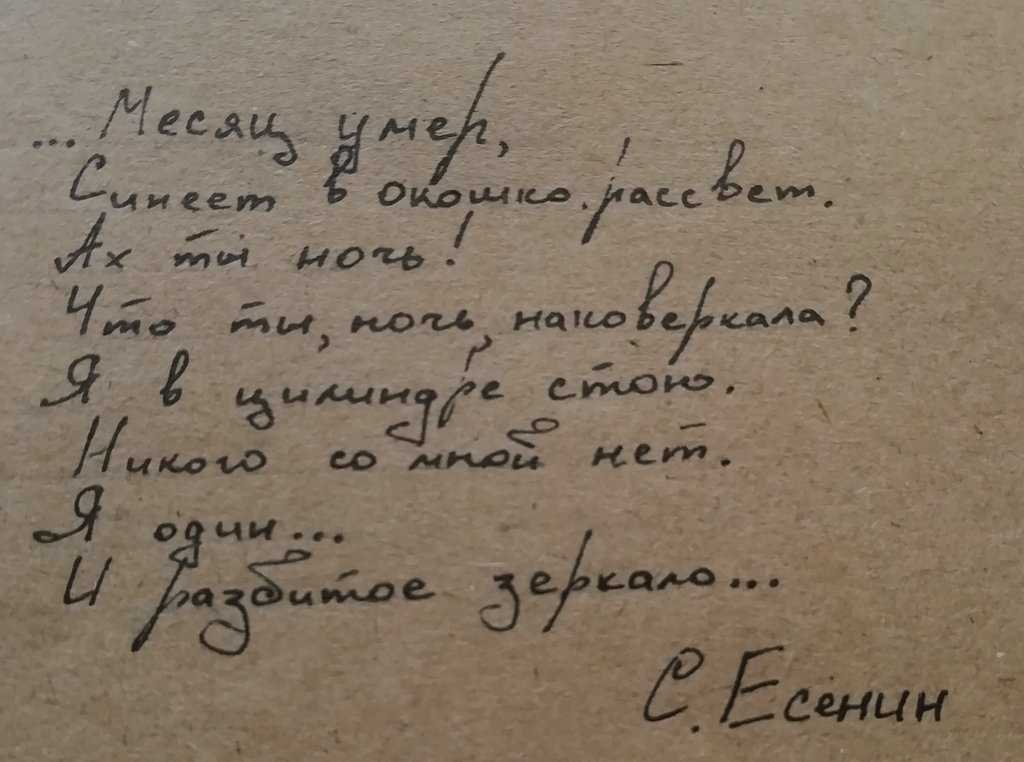 ...Месяц умер,
Синеет в окошко рассвет.
Ах ты ночь!
Что ты, ночь, наковеркала?
Я в цилиндре стою.
Никого со мной нет.
Я один...
И разбитое зеркало...
С. Есенин